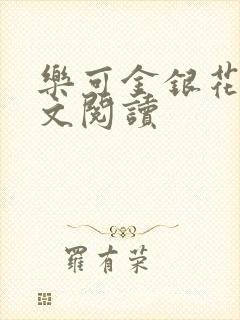 樂可金銀花
文閱讀
羅有荣